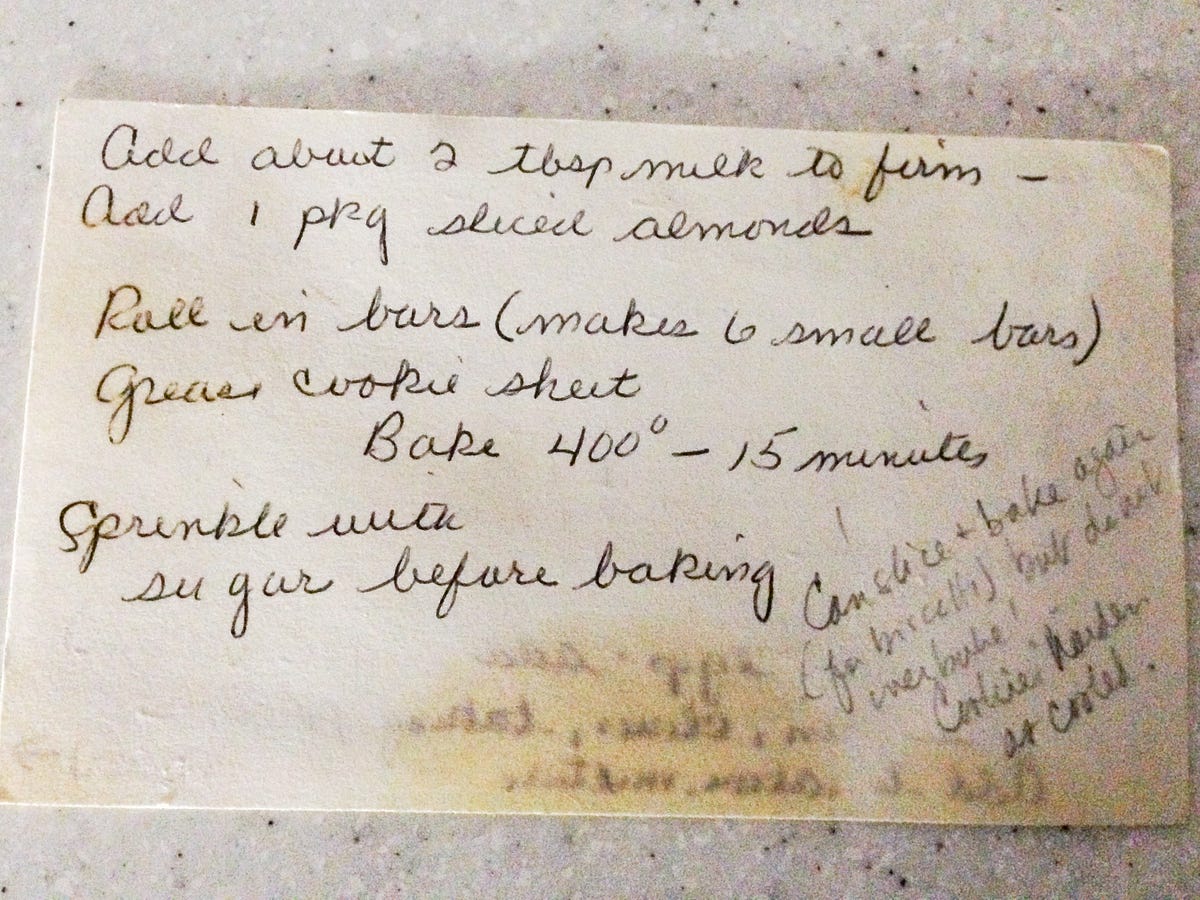 Add about 2 tbsp milk to firm –
Add 1 pkg sliced almonds
Roll in bars (makes 6 small bars)
Grease cookie sheet
Bake 400° – 15 minutes
Sprinkle with
sugar before baking
! Can slice + bake again
(for biscotti) but do not
overbake!
Cookies harden
as cooled.